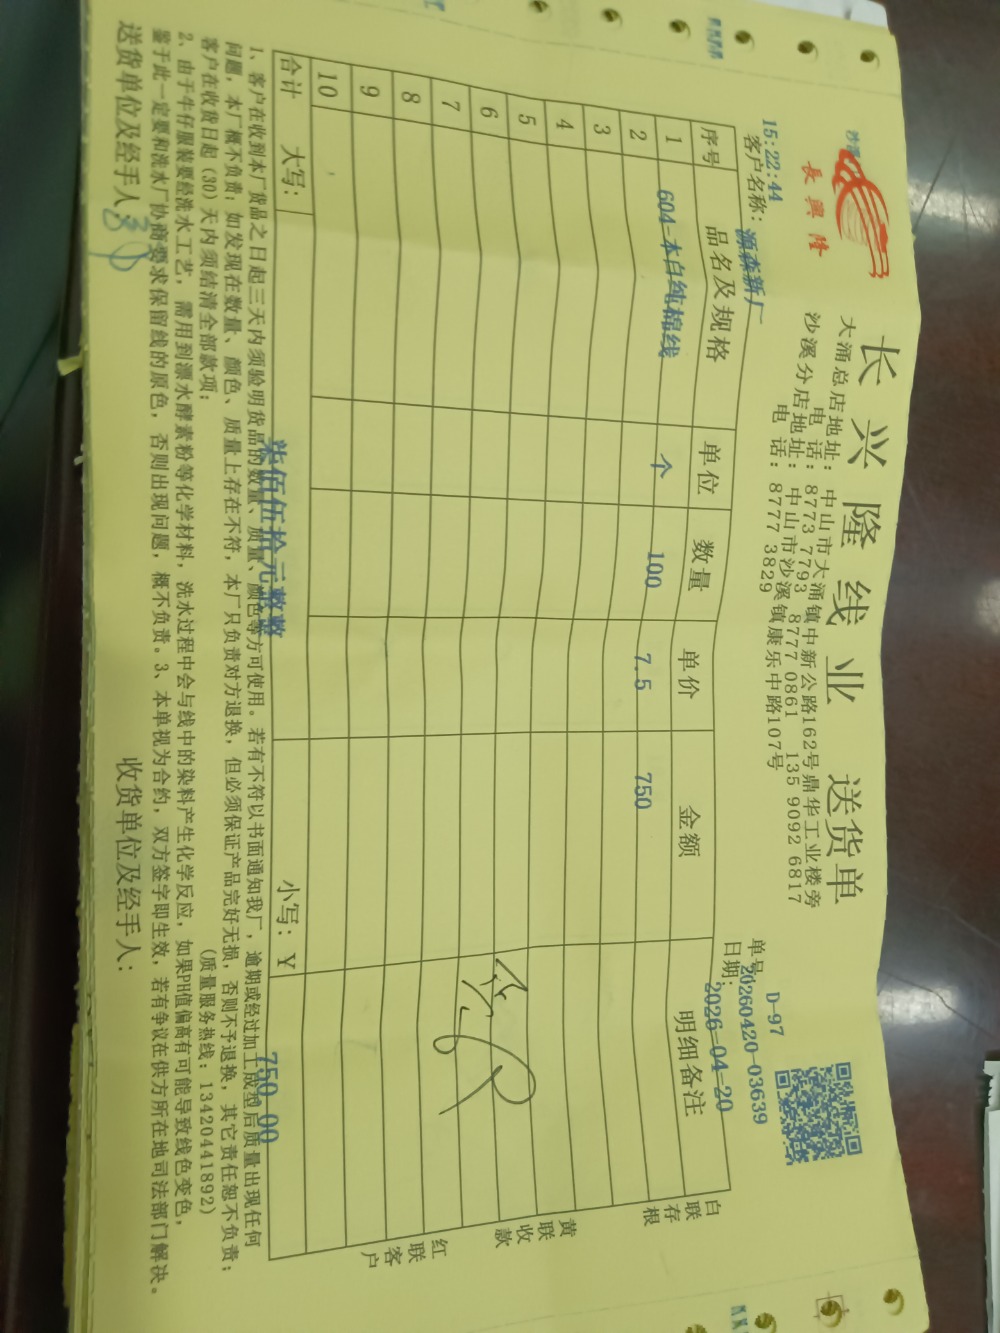 長興隆
长兴隆线业 送货单
大涌总店地址：中山市大涌镇中新公路162号鼎华工业楼旁
电 话：8773 7793 8777 0861 135 9092 6817
沙溪分店地址：中山市沙溪镇康乐中路107号
电 话：8777 3829
D-97
单号：20260420-03639
15:22:44
客户名称：源森新厂
日期：2026-04-20
序号 品名及规格 单位 数量 单价 金额 明细备注
1 604-本白纯棉线 个 100 7.5 750
2
3
4
5
6
7
8
9
10
合计 大写：柒佰伍拾元整整 小写：Y 750.00
白联存根
黄联收款
红联客户
1、客户在收到本厂货品之日起三天内须验明货品的数量、质量、颜色等方可使用。若有不符以书面通知我厂，逾期或经过加工成型后质量出现任何
问题，本厂概不负责；如发现在数量、颜色、质量上存在不符，本厂只负责对方退换，但必须保证产品完好无损，否则不予退换，其它责任恕不负责；
客户在收货日起（30）天内须结清全部款项；（质量服务热线：13420441892）
2、由于牛仔服装要经洗水工艺，需用到漂水酵素粉等化学材料，洗水过程中会与线中的染料产生化学反应，如果PH值偏高有可能导致线色变色，
鉴于此一定要和洗水厂协商要求保留线的原色，否则出现问题，概不负责。3、本单视为合约，双方签字即生效，若有争议在供方所在地司法部门解决。
送货单位及经手人： 收货单位及经手人：